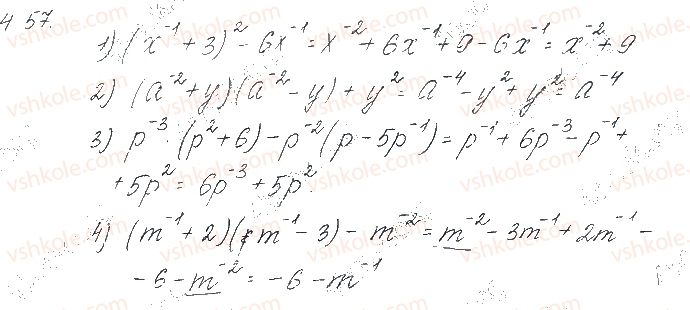 457.
1) (x⁻¹ + 3)² - 6x⁻¹ = x⁻² + 6x⁻¹ + 9 - 6x⁻¹ = x⁻² + 9
2) (a⁻² + y)(a⁻² - y) + y² = a⁻⁴ - y² + y² = a⁻⁴
3) p⁻³ · (p² + 6) - p⁻²(p - 5p⁻¹) = p⁻¹ + 6p⁻³ - p⁻¹ +
+ 5p² = 6p⁻³ + 5p².
4) (m⁻¹ + 2)(m⁻¹ - 3) - m⁻² = m⁻² - 3m⁻¹ + 2m⁻¹ -
- 6 - m⁻² = -6 - m⁻¹
vshkole.com